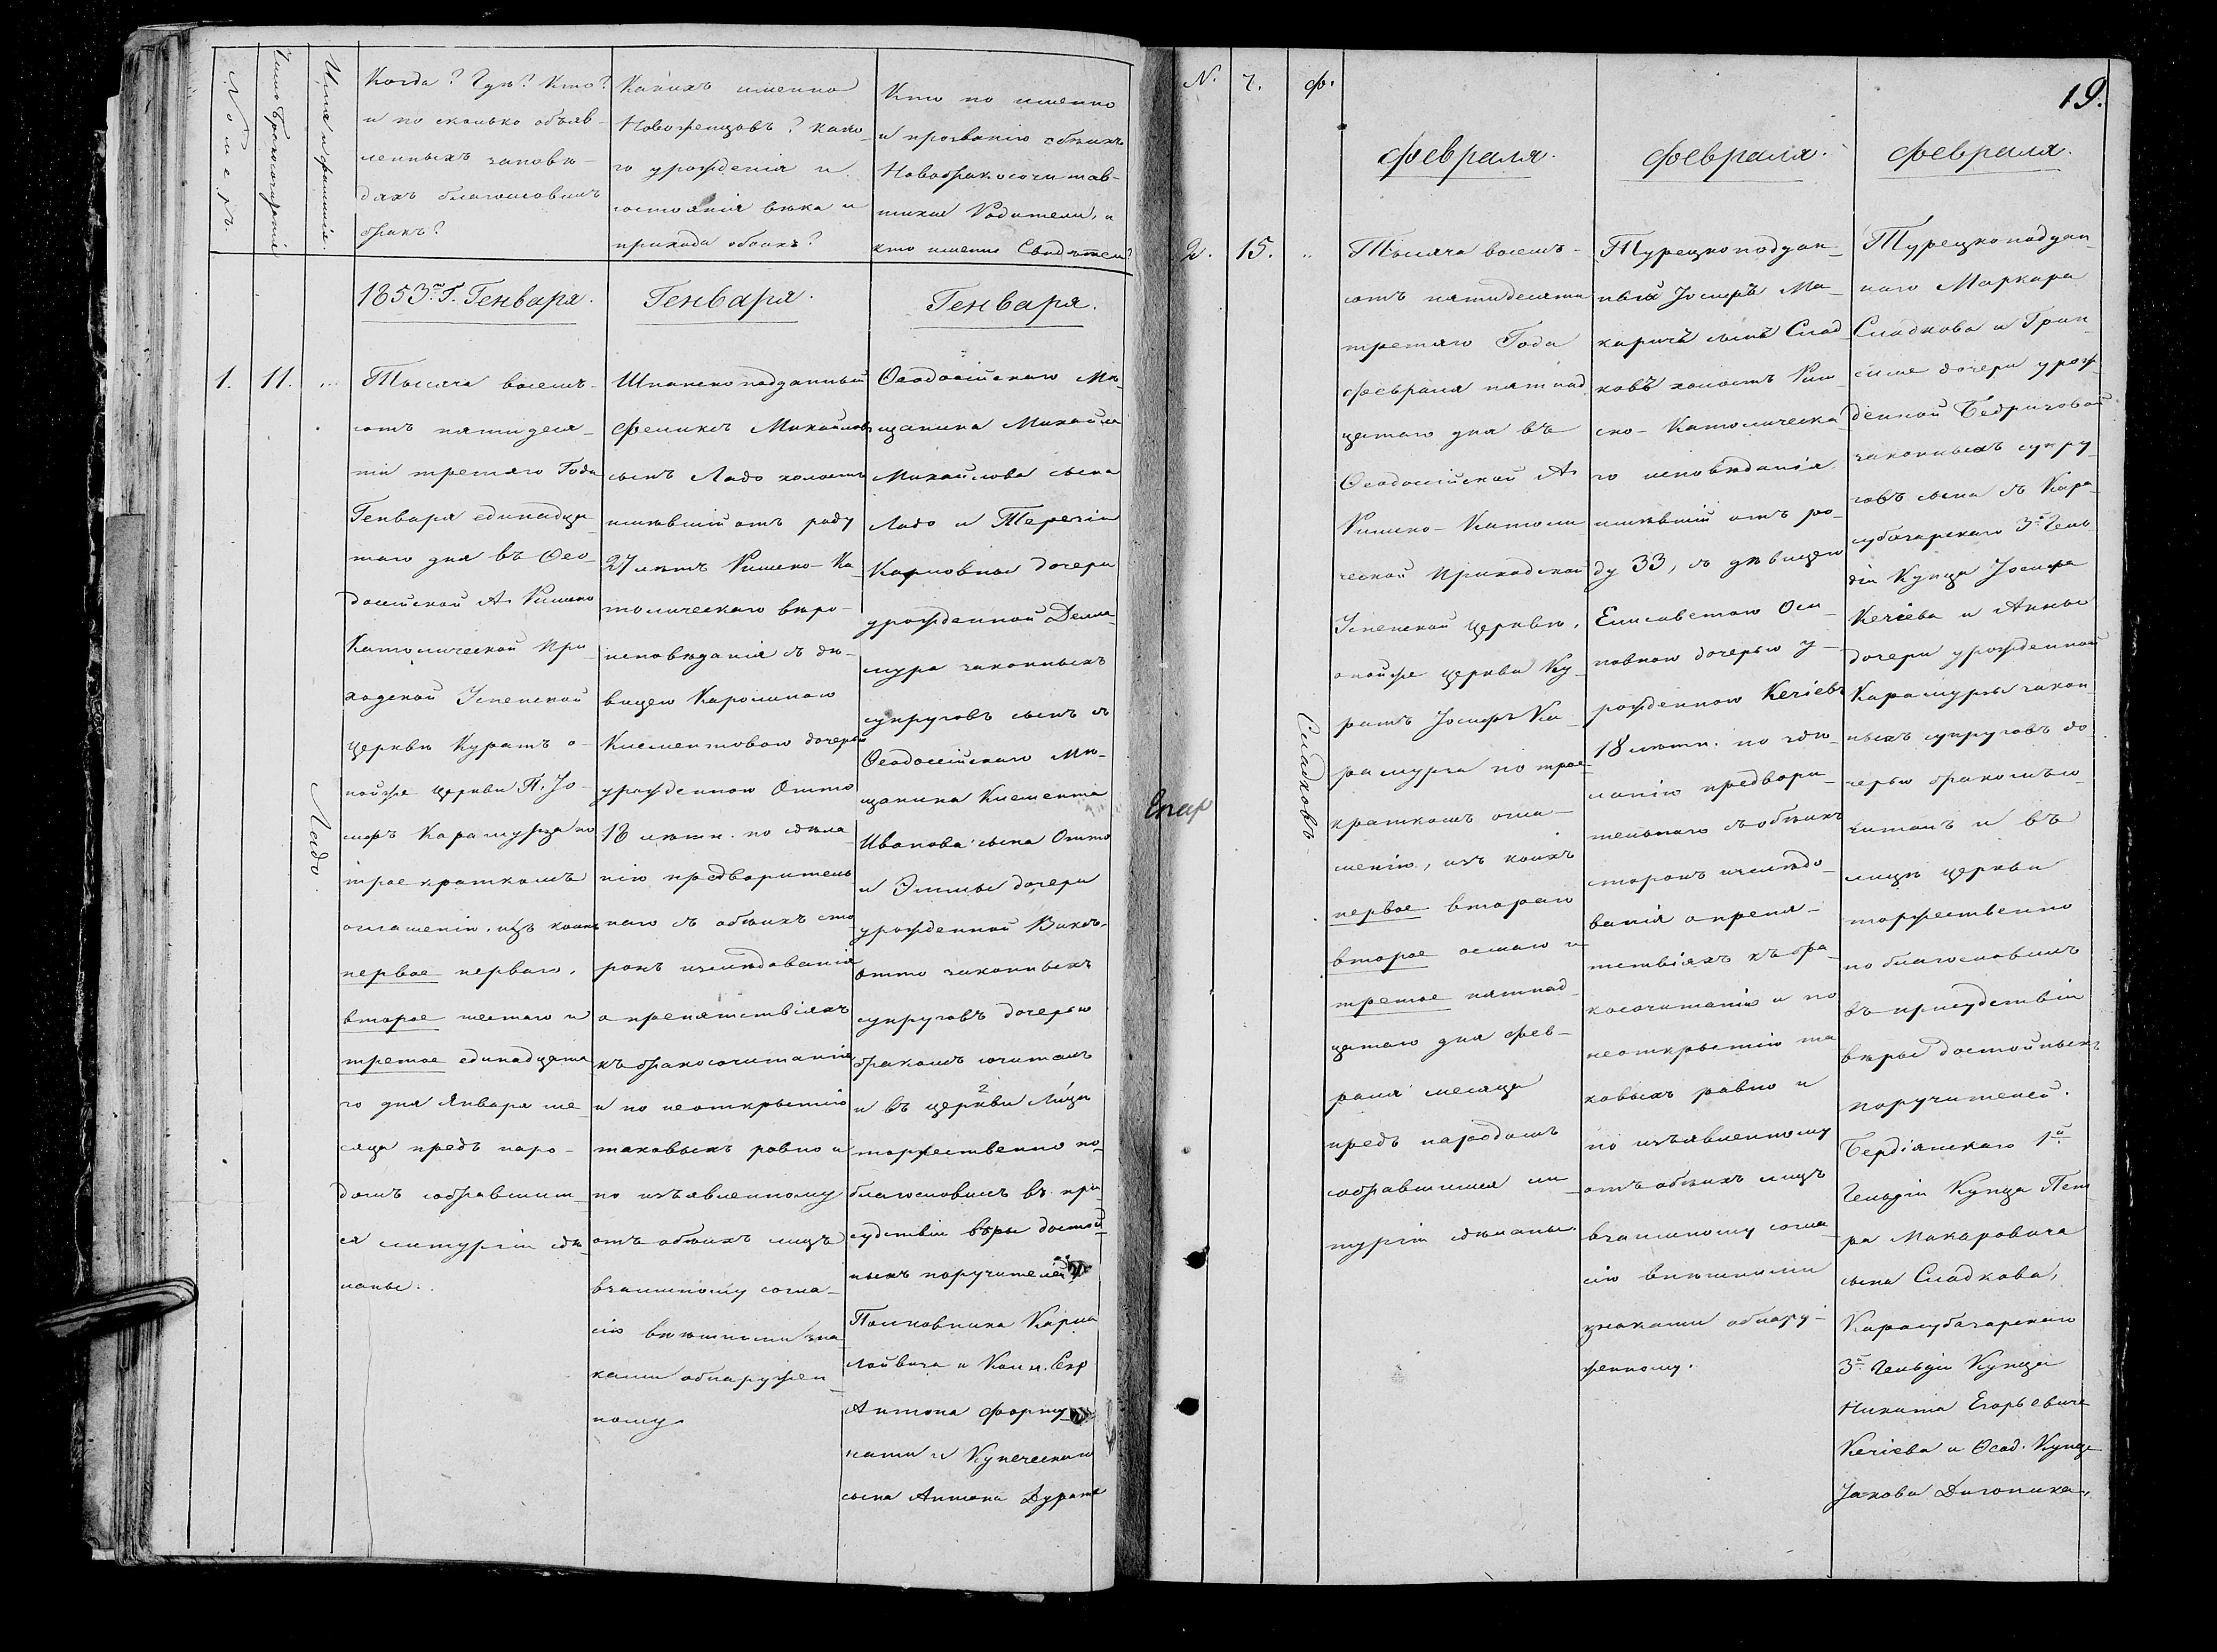 Номеръ.
Число Бракосочетанія
Имя и фамилія.
Когда? Гдѣ? Кто?
и по сколько объяв-
ленныхъ заповѣ-
дяхъ благословилъ
бракъ?
Какихъ именно
Новоженцовъ? како-
го урожденія и
состоянія вѣка и
прихода обоихъ?
Кто по имени
и прозванію обѣихъ
Новобракосочитав-
шихся Родители, и
кто именно Свидѣтели?
1853го Г. Генваря.
Генваря.
Генваря.
1.
11.
Ладо.
Тысяча восемь-
сотъ пятидеся-
ти третяго Года
Генваря единадца-
таго дня въ Ѳео-
досійской А. Римско
Католической При-
ходской Успенской
Церквѣ Куратъ о-
нойже Церкви П. Іо-
сифъ Карамурза по
троекраткомъ
оглашеніи, изъ коихъ
первое перваго,
второе шестаго и
третое единадцата
го дня Января ме
сяца предъ наро-
домъ собравшим-
ся литургіи сдѣ
ланы.
Шпанскоподданный
Феликсъ Михайловъ
сынъ Ладо холостъ
имѣвшій отъ роду
27 лѣтъ Римско-Ка-
толическаго вѣро-
исповѣданія съ дѣ-
вицею Каролиною
Климентовою дочерью
урожденною Отто
18 лѣтн. по сдѣла
нію предваритель
наго съ обѣихъ сто
ронъ изслѣдованія
о препятствіяхъ
къ бракосочитанію
и по неоткрытію
таковыхъ равно и
по изъявленному
отъ обѣихъ лицъ
взаимному согла-
сію внѣшними зна
ками обнаружен-
ному
Ѳеодосійскаго Мѣ-
щанина Михайла
Михайлова сына
Ладо и Терезіи
Карловны дочери
урожденной Делла-
мура законныхъ
супруговъ сынъ съ
Ѳеодосійскаго Мѣ-
щанина Климента
Иванова сына Отто
и Эммы дочери
урожденной
Отто законныхъ
супруговъ дочерью
бракомъ сочиталъ
и въ церкви Лицѣ
торжественно по-
благословилъ въ при
судствіи вѣры достой
ныхъ поручителей
Полковника Карла
и Колл. Секр
Антона Форту
нати и Купеческаго
сына Антона Дуранте
N.
ч.
ф.
19.
Февраля.
Февраля.
Февраля.
2.
15.
Сладковъ
Тысяча восемь-
сотъ пятидесяти
третяго Года
Февраля пятнад
цатаго дня въ
Ѳеодосійской А.
Римско-Католи
ческой Приходской
Успенской Церквѣ,
онойже церкви Ку
ратъ Іосифъ Ка-
рамурза по трое
краткомъ огла-
шенію, изъ коихъ
первое втораго
второе осмаго и
третое пятнад
цатаго дня Фев-
раля месяца
предъ народомъ
собравшимся ли
тургіи сдѣланы.
Турецкоподдан-
ный Іосифъ Ма-
каричъ сынъ Слад
ковъ холостъ Рим
ско-Католическа
го исповѣданія
имѣвшій отъ ро-
ду 33, съ дѣвицею
Елисаветою Оси-
повною дочерью у-
рожденною Кечіевъ
18 лѣтн. по здѣ-
ланію предвари-
тельнаго съ обѣихъ
сторонъ изслѣдо
ванія о препя-
тствіяхъ къ бра
косочитанію и по
неоткрытію та
ковыхъ равно и
по изъявленному
отъ обѣихъ лицъ
взаимному согла
сію внѣшними
знаками обнару-
женному.
Турецкоподдан
наго Маркара
Сладкова и Гран
симе дочери урож
денной Бедризовой
законныхъ супру
говъ сына съ Кара
субазарскаго 3й Гиль
діи Купца Іосифа
Кечіева и Анны
дочери урожденной
Карамурзы закон
ныхъ супруговъ до
черью бракомъ со
читалъ и въ
лицѣ церкви
торжественно
поблагословилъ
въ присудствіи
вѣры достойныхъ
поручителей.
Бердіянскаго 1й
Гильдіи Купца Пет
ра Макаровича
сына Сладкова,
Карасубазарскаго
3й Гильдіи Купца
Никита Егорьевича
Кечіева и Ѳеод. Купца
Якова